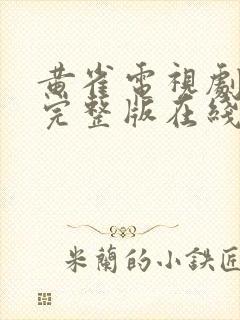 黄雀電視劇
完整版在綫
米蘭的小鉄匠